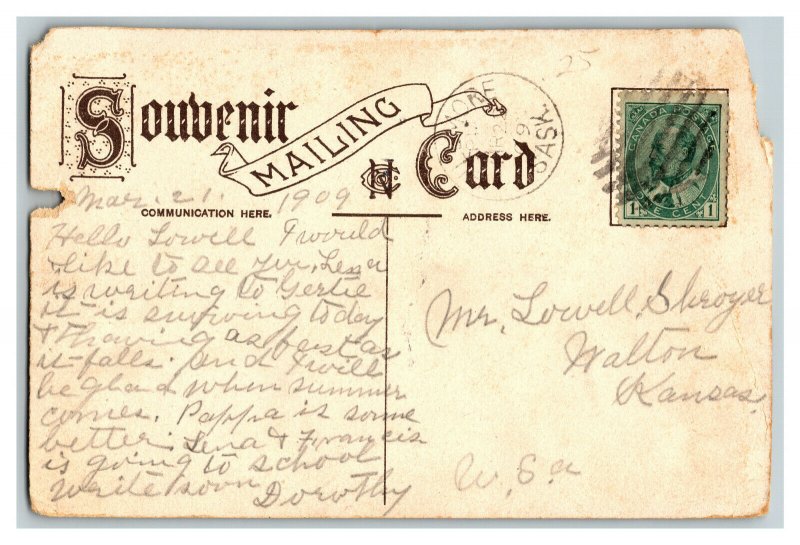 Souvenir
MAILING
Card
SASK.
25
CANADA POSTAGE
1 ONE CENT 1
COMMUNICATION HERE.
ADDRESS HERE.
Mar. 21. 1909
Hello Lowell I would
like to see you. Lena
is writing to Gertie
it is snowing today
& thawing as fast as
it falls. and I will
be glad when summer
comes. Pappa is some
better. Lena & Francis
is going to school
write soon Dorothy
Mr. Lowell Shroyer
Walton
Kansas.
U.S.a